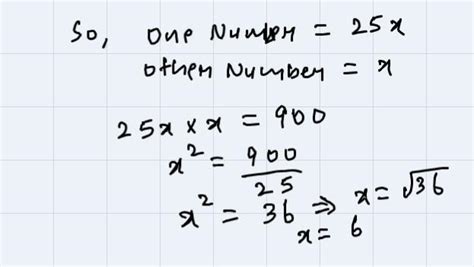 So, One Number = 25x
Other Number = x
25x × x = 900
x² = 900/25
x² = 36 ⇒ x = √36
x = 6